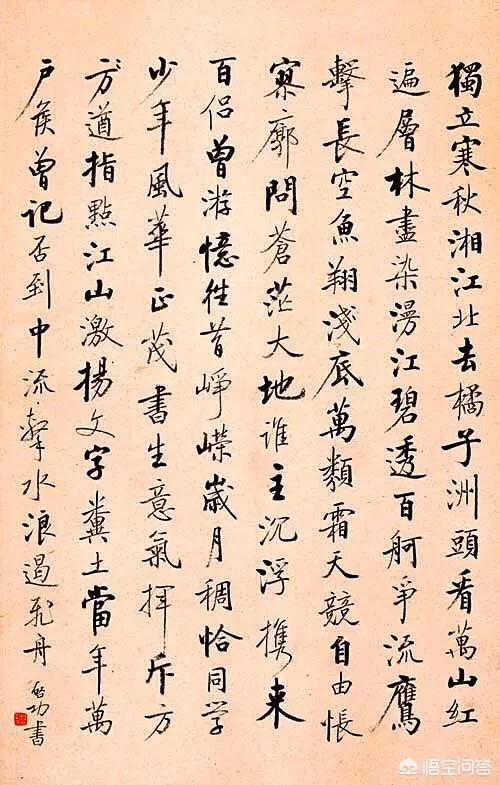 獨立寒秋湘江北去橘子洲頭看萬山紅
遍層林盡染漫江碧透百舸爭流鷹
擊長空魚翔淺底萬類霜天競自由悵
寥廓問蒼茫大地誰主沉浮携来
百侣曾游憶往昔崢嶸歲月稠恰同學
少年風華正茂書生意氣揮斥方
方遒指點江山激揚文字糞土當年萬
户侯曾記否到中流擊水浪遏飛舟 啟功書
悟空问答